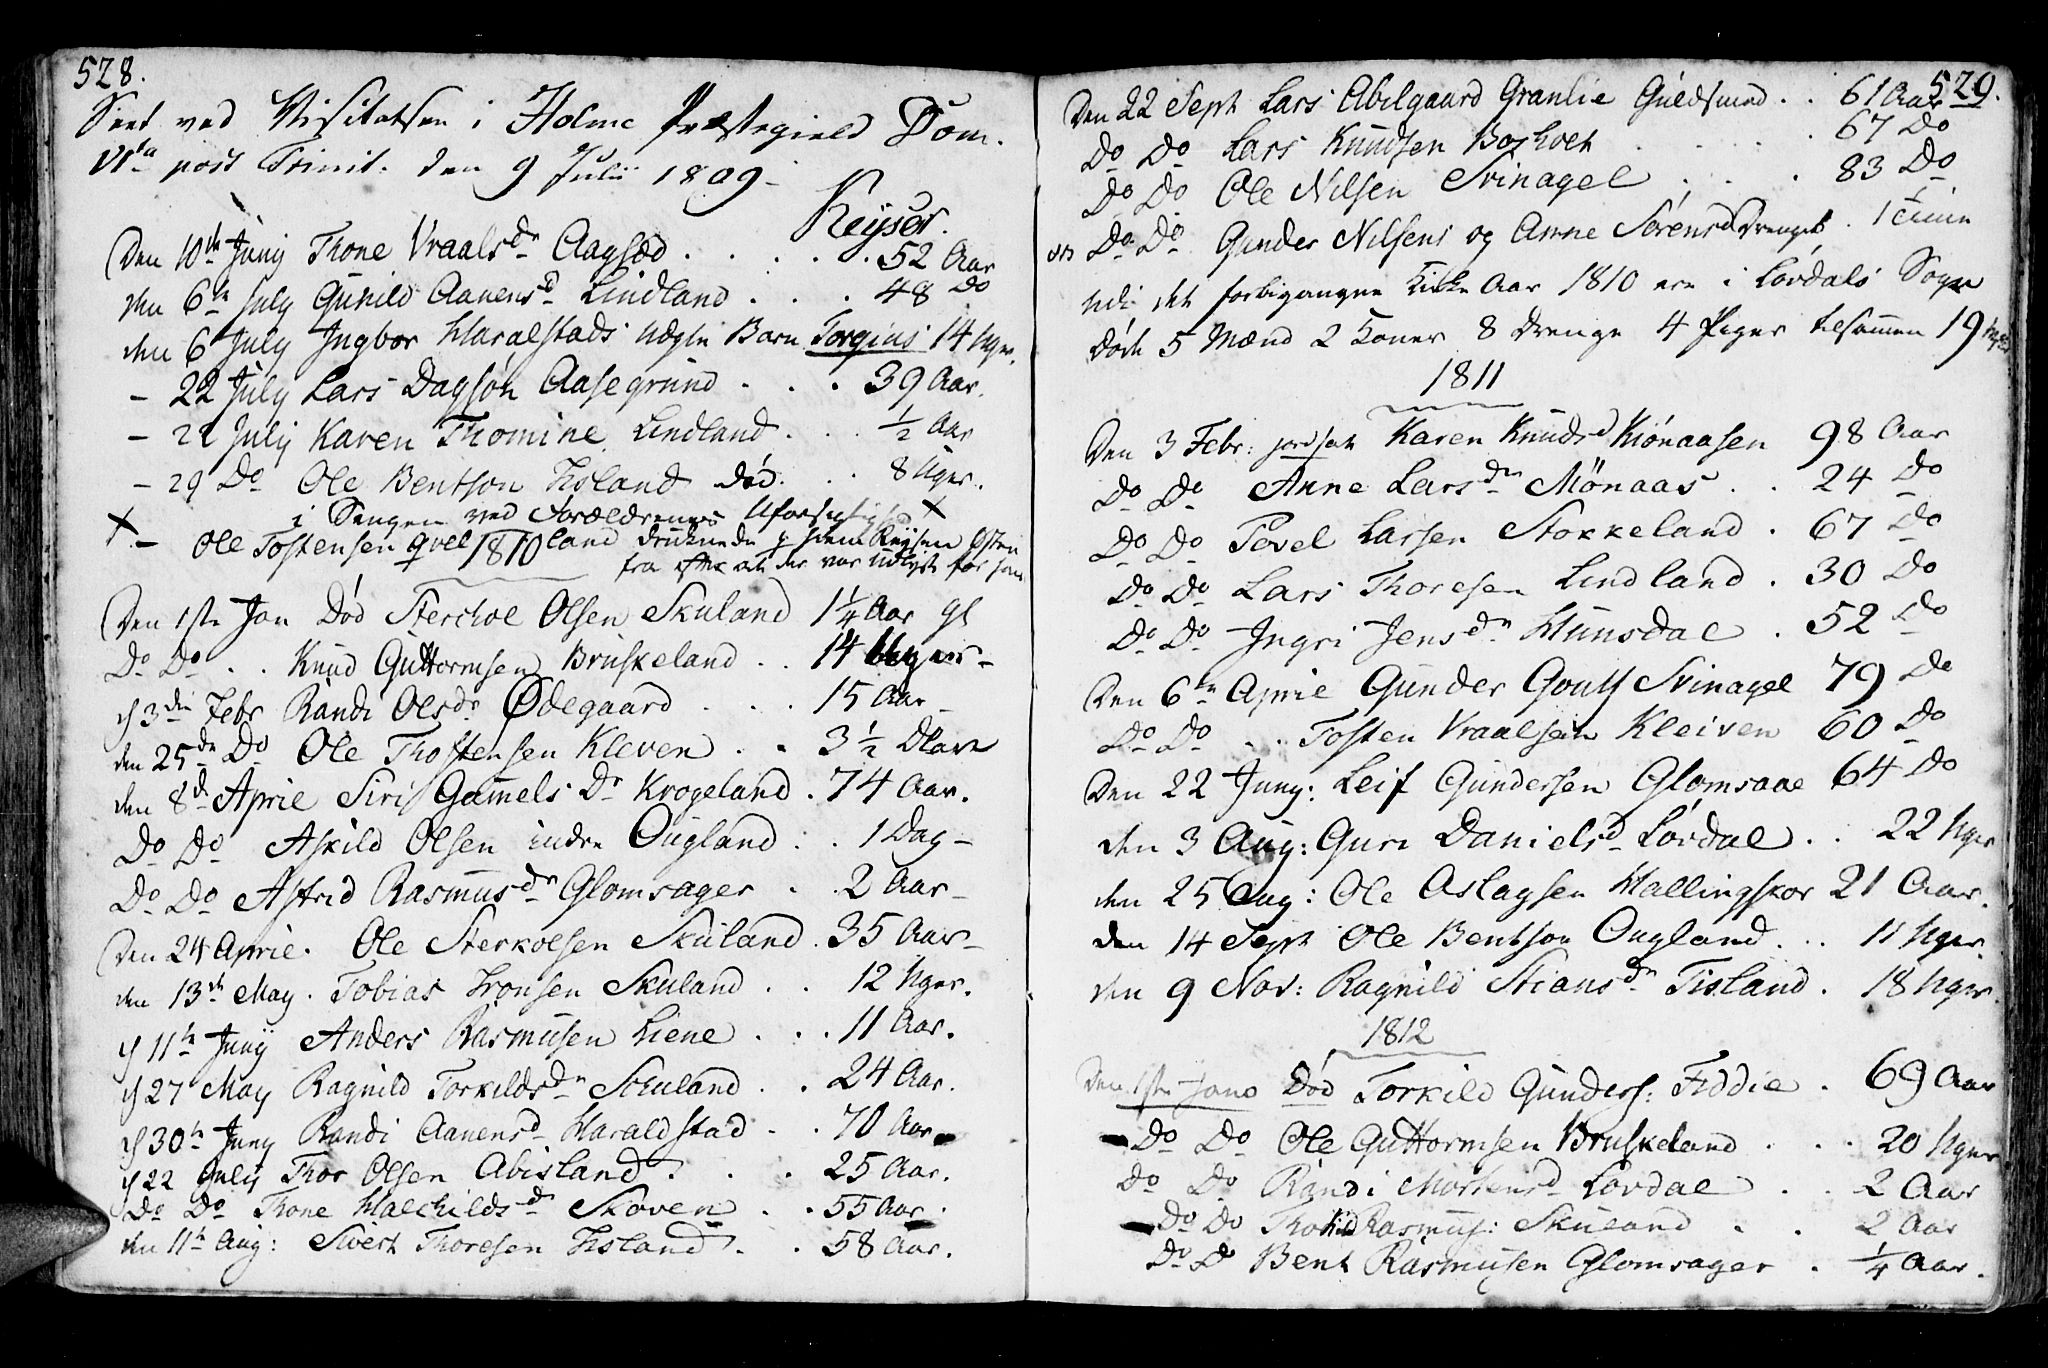 528.
Seet ved Visitatsen i Holme Præstegield Dom.
VIta post Trinit. den 9 Julii 1809 -
Keyser.
Den 10de Junij Thone Vraalsdr Aagsæd . . . . . 52 Aar
den 6te July Gunild Aanensd Lindland . . . 48 Do
den 6 July Ingbor Haralstads uægte Barn Torgius 14 Uger.
- 22 July Lars Dagson Aasegrund . . . 39 Aar.
- 22 July Karen Thomine Lindland . . . ½ Aar
- 29 Do Ole Bentson Tisland død . . 8 Uger.
i Sengen ved Forældrenes Uforsigtighed +
+ - Ole Tostensen land druknede
fra efter at der var udlyst for ham
1810
Den 1ste Jan Død Sterchol Olsen Skuland 1¼ Aar gl
Do Do . . Knud Guttormsen Bruskeland . . 14 Uger -
d 3die Febr Randi Olsdr Ødegaard . . . 15 Aar -
den 25de Do Ole Thostensen Kleven . . 3½ Aar
den 8de April Siri Gamels Dr Krogeland . 74 Aar.
Do Do Askild Olsen indre Ougland . . 1 Dag -
Do Do Astrid Rasmusdr Glomsager . . 2 Aar -
Den 24 April. Ole Sterkolsen Skuland . 35 Aar -
den 13de May . Tobias Tronsen Skuland . . 12 Uger.
d 11te Junij Anders Rasmusen Liene . . . 11 Aar.
d 27 May Ragnild Torkildsdr Skuland . . 24 Aar.
d 30te Juny Randi Aanensd Haraldstad . . 70 Aar.
d 22 July Thor Olsen Abisland . . . 25 Aar.
Do Do Thone Halchildsdr Skoven . . 55 Aar.
den 11te Aug: Sivert Thoresen Tisland . . 58 Aar.
529.
Den 22 Sept Lars Abilgaard Granlie Guldsmed . . 61 Aar
Do Do Lars Knudsen Bosholt . . . . 67 Do
Do Do Ole Nilsen Svinagel . . . 83 Do
Do Do Gunder Nilsens og Anne Sørensd Drengeb. . 1 Time
Udi det forbigangne Kirke Aar 1810 ere i Løvdals Sogn
døde 5 Mænd 2 Koner 8 Drenge 4 Piger tilsamen 19
1811
Den 3 Febr: jordsat Karen Knudsd Kiønaasen 98 Aar
Do Do Anne Larsdr Mønaas . . 24 Do
Do Do Povel Larsen Stokkeland . 67 Do
Do Do Lars Thoresen Lindland . 30 Do
Do Do Ingri Jensdr Hunsdal . 52 Do
Den 6te April Gunder Svinagel 79 Do
Do Do . . Tosten Vraalsen Kleiven 60 Do
Den 22 Juny: Leif Gundersen Glomsaae 64 Do
den 3 Aug: Guri Danielsd Løvdal . . 22 Uger
den 25 Aug: Ole Aslagsen Hallingskor 21 Aar.
den 14 Sept Ole Bentson Ougland . . . 11 Uger.
den 9 Nov: Ragnild Stiansdr Tisland . 18 Uger.
1812
Den 1ste Jano Død Torkild Gunders: Fiddie . 69 Aar
Do Do Ole Guttormsen Bruskeland . . . 20 Uger
Do Do Randi Mortensd Løvdal . . 2 Aar
Do Do Rasmus: Skuland . . 2 Aar
Do Do Bent Rasmusen Glomsager . ¼ Aar.